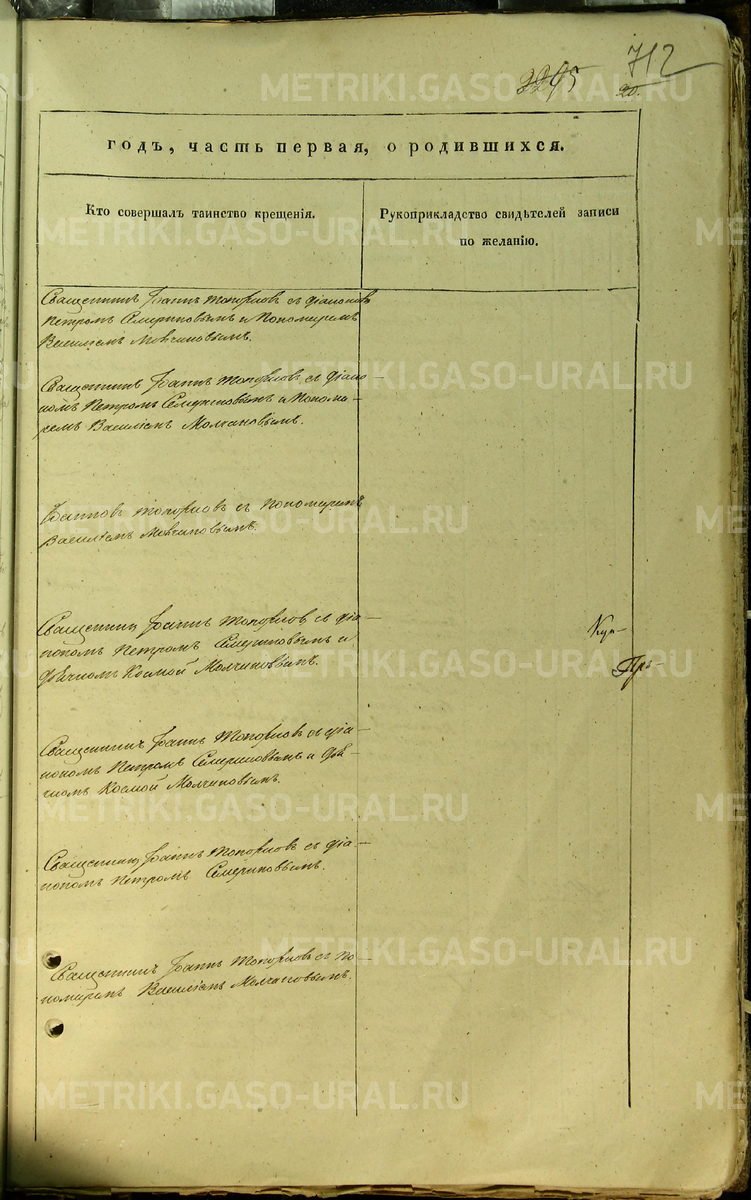 2295
712
20.
годъ, часть первая, о родившихся.
Кто совершалъ таинство крещенія.
Рукоприкладство свидѣтелей записи
по желанію.
Священникъ Іоаннъ Топорковъ съ діакономъ
Петромъ и Пономаремъ
Василіемъ Молчановымъ.
Священникъ Іоаннъ Топорковъ съ діако-
номъ Петромъ и Понома-
ремъ Василіемъ Молчановымъ.
Іоаннъ Топорковъ съ Пономаремъ
Василіемъ Молчановымъ.
Священникъ Іоаннъ Топорковъ съ діа-
кономъ Петромъ и
Дьячкомъ Космой Молчановымъ.
Священникъ Іоаннъ Топорковъ съ діа-
кономъ Петромъ и Дья-
чкомъ Космой Молчановымъ.
Священникъ Іоаннъ Топорковъ съ діа-
кономъ Петромъ
Священникъ Іоаннъ Топорковъ съ По-
номаремъ Василіемъ Молчановымъ.
METRIKI.GASO-URAL.RU